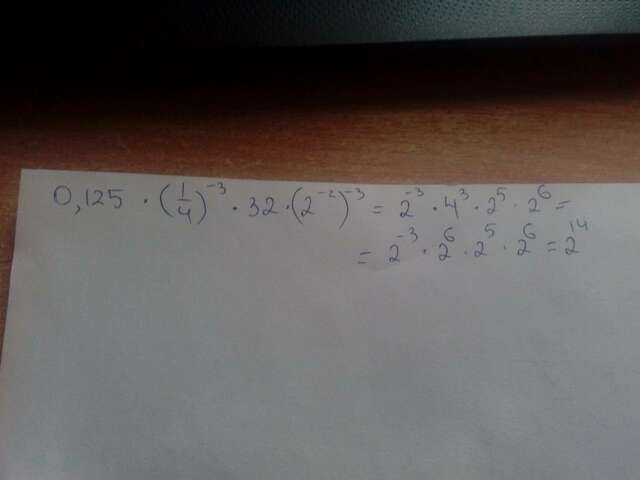 0,125 · (1/4)⁻³ · 32 · (2⁻²)⁻³ = 2⁻³ · 4³ · 2⁵ · 2⁶ =
= 2⁻³ · 2⁶ · 2⁵ · 2⁶ = 2¹⁴